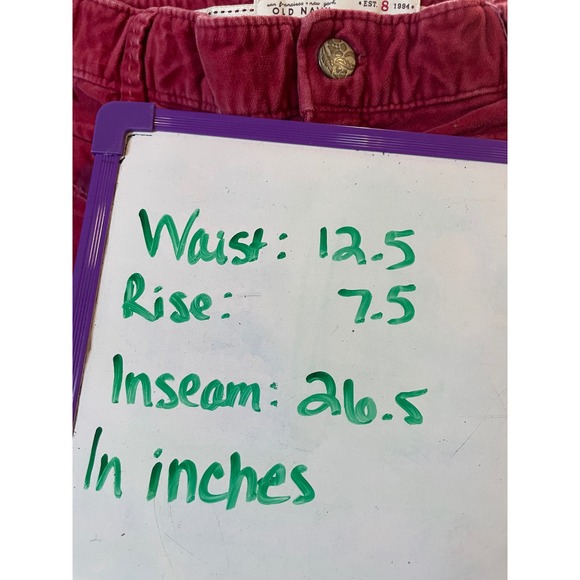 san francisco • new york
OLD NAVY
• EST. 8 1994 •
Waist: 12.5
Rise: 7.5
Inseam: 26.5
In inches